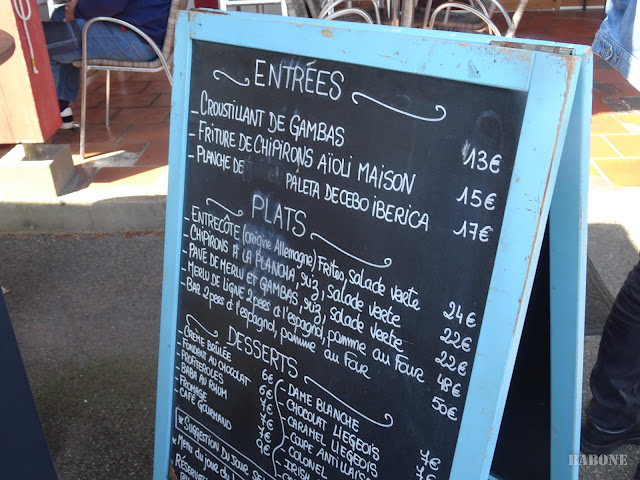 ENTRÉES
- CROUSTILLANT DE GAMBAS 13€
- FRITURE DE CHIPIRONS AÏOLI MAISON 15€
- PLANCHE DE PALETA DE CEBO IBERICA 17€
PLATS
- ENTRECÔTE (origine Allemagne) Frites, salade verte 24€
- CHIPIRONS A LA PLANCHA, riz, salade verte 22€
- PAVÉ DE MERLU ET GAMBAS, riz, salade verte 22€
- MERLU DE LIGNE 2 pers à l'espagnol, pomme au Four 48€
- BAR 2 pers à l'espagnol, pomme au Four 50€
DESSERTS
- CRÈME BRÛLÉE 6€
- FONDANT AU CHOCOLAT 6€
- PROFITEROLES
- BABA AU RHUM
- FROMAGE
- CAFÉ GOURMAND
- DAME BLANCHE 7€
- CHOCOLAT LIÉGEOIS
- CARAMEL LIÉGEOIS
- COUPE ANTILLAISE
- COLONEL
- IRISH
* SUGGESTION DU JOUR
* Menu du jour
RÉSERVATION
BABONE